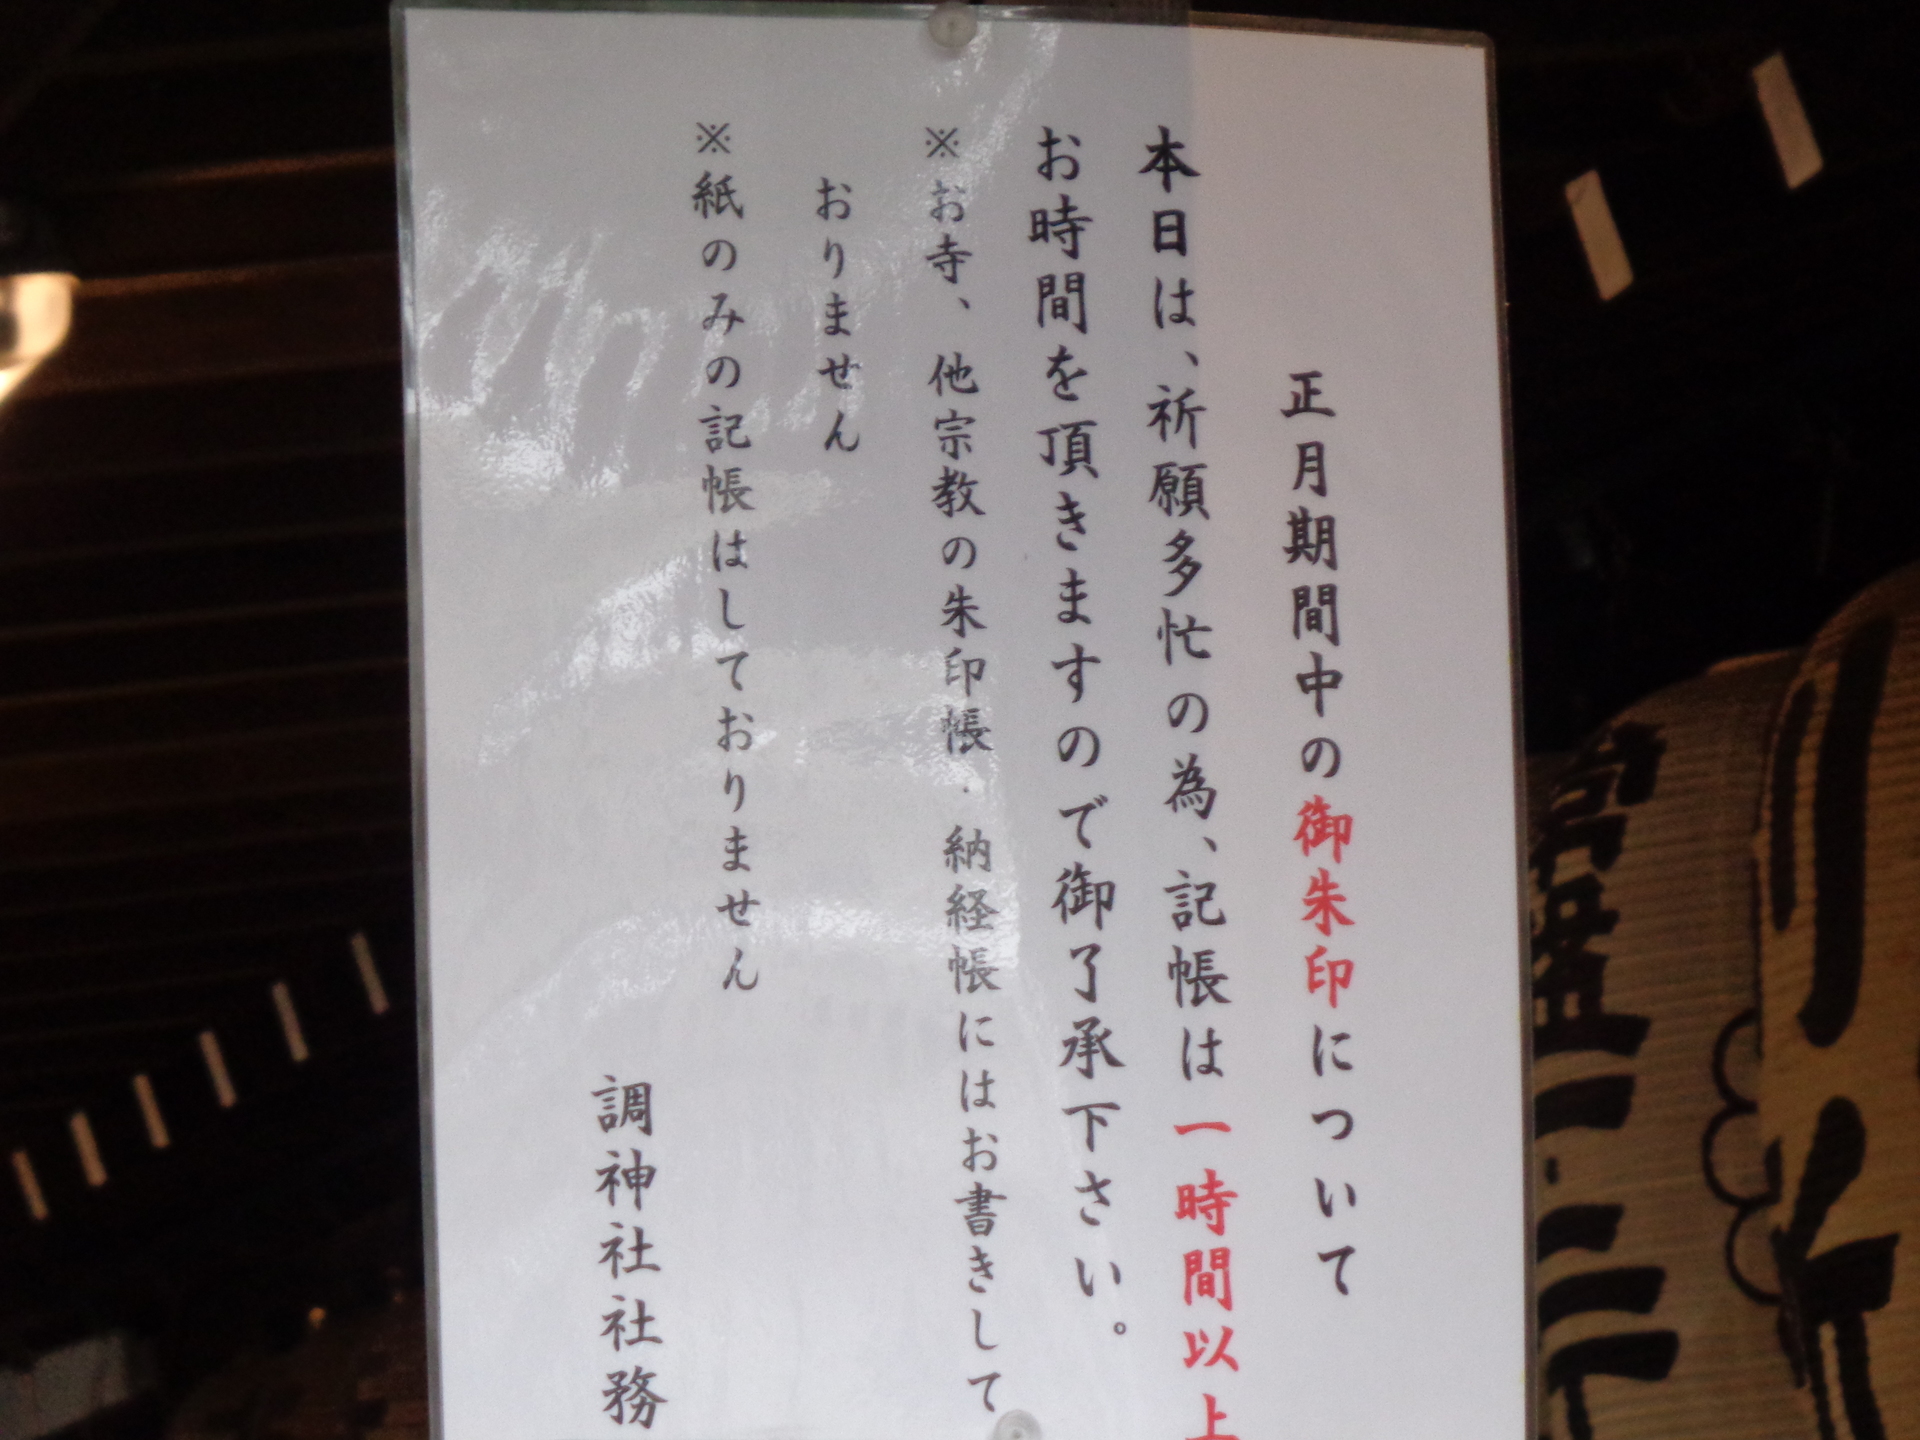 正月期間中の御朱印について
本日は、祈願多忙の為、記帳は一時間以上
お時間を頂きますので御了承下さい。
※お寺、他宗教の朱印帳・納経帳にはお書きして
おりません
※紙のみの記帳はしておりません
調神社社務